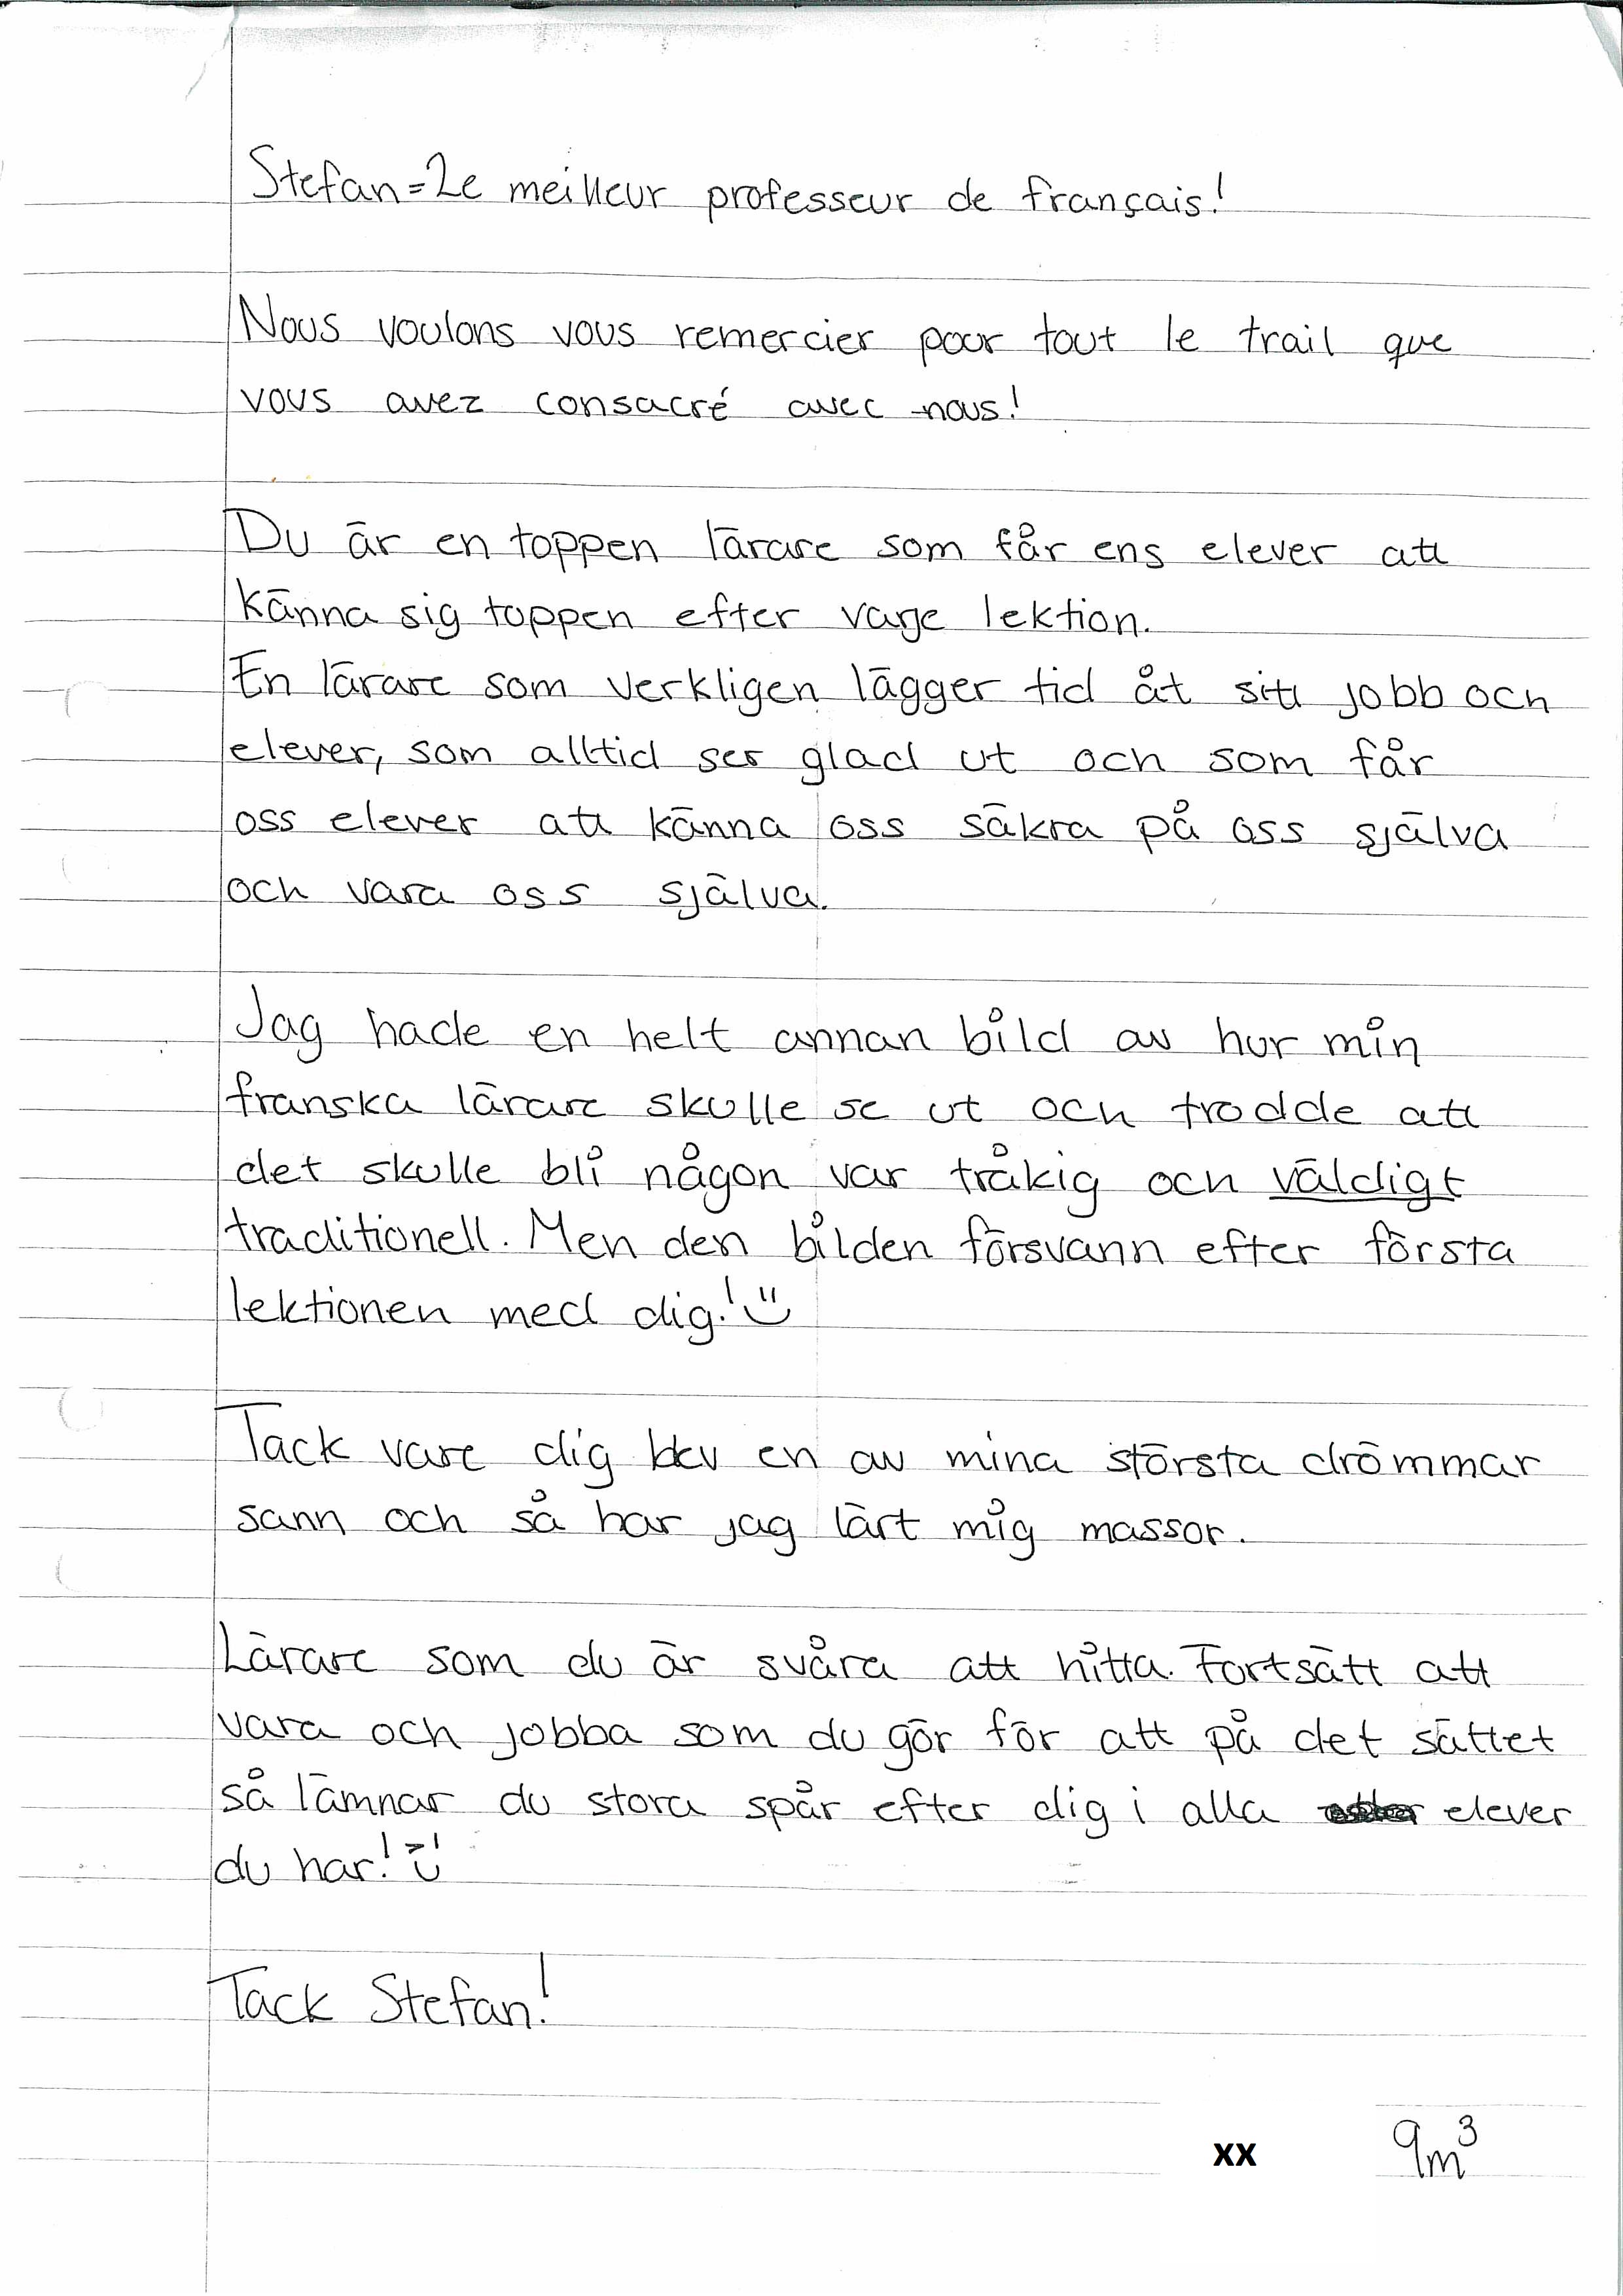 Stefan = Le meilleur professeur de français!
Nous voulons vous remercier pour tout le trail que
vous avez consacré avec nous!
Du är en toppen lärare som får ens elever att
känna sig toppen efter varje lektion.
En lärare som verkligen lägger tid åt sitt jobb och
elever, som alltid ser glad ut och som får
oss elever att känna oss säkra på oss själva
och vara oss själva.
Jag hade en helt annan bild av hur min
franska lärare skulle se ut och trodde att
det skulle bli någon var tråkig och väldigt
traditionell. Men den bilden försvann efter första
lektionen med dig! Ü
Tack vare dig blev en av mina största drömmar
sann och så har jag lärt mig massor.
Lärare som du är svåra att hitta. Fortsätt att
vara och jobba som du gör för att på det sättet
så lämnar du stora spår efter dig i alla elever
du har!
Tack Stefan!
xx 9m³